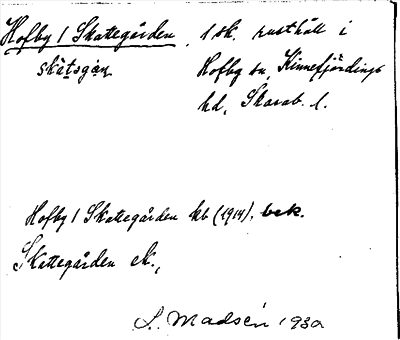 Hofby 1 Skattegården, 1 sk. rusthåll i
skátsgàn Hofby sn, Kinnefjärdings
hd, Skarab. l.
Hofby 1 Skattegården kb (1914), bek.
Skattegården ek.,
S. Madsén 1930